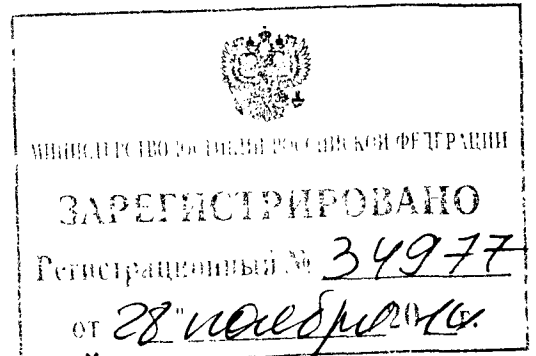 МИНИСТЕРСТВО ЮСТИЦИИ РОССИЙСКОЙ ФЕДЕРАЦИИ
ЗАРЕГИСТРИРОВАНО
Регистрационный № 34977
от "28" ноября 2014 г.